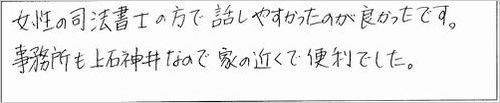 女性の司法書士の方で話しやすかったのが良かったです。
事務所も上石神井なので家の近くで便利でした。